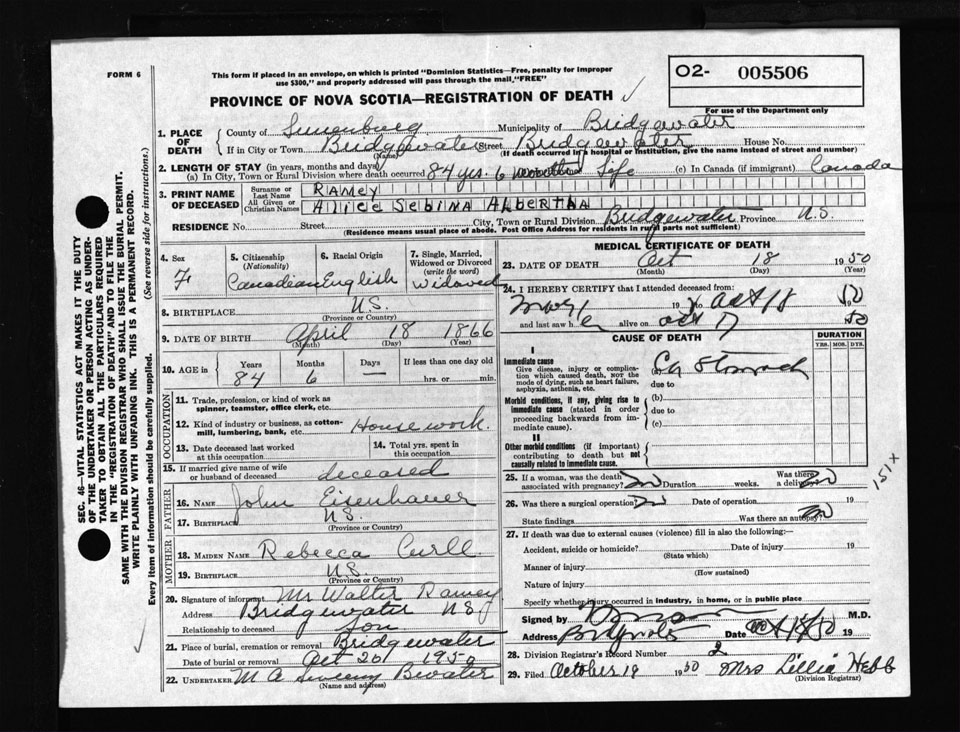 FORM 6
This form if placed in an envelope, on which is printed "Dominion Statistics—Free, penalty for improper
use $300," and properly addressed will pass through the mail, "FREE"
O2- 005506
For use of the Department only
PROVINCE OF NOVA SCOTIA—REGISTRATION OF DEATH
1. PLACE OF DEATH
County of Lunenburg Municipality of Bridgewater
If in City or Town Bridgewater Street Bridgewater House No.
(Name) (If death occurred in a hospital or institution, give the name instead of street and number)
2. LENGTH OF STAY (in years, months and days)
(a) In City, Town or Rural Division where death occurred 84 yrs. 6 months Life (c) In Canada (if immigrant) Canada
3. PRINT NAME OF DECEASED
Surname or Last Name RAMEY
All Given or Christian Names Alice Sebina Albertha
RESIDENCE No. Street City, Town or Rural Division Bridgewater Province N.S.
(Residence means usual place of abode. Post Office Address for residents in rural parts not sufficient)
4. Sex F
5. Citizenship (Nationality) Canadian
6. Racial Origin English
7. Single, Married, Widowed or Divorced (write the word) Widowed
8. BIRTHPLACE N.S.
(Province or Country)
9. DATE OF BIRTH April 18 1866
(Month) (Day) (Year)
10. AGE in Years 84 Months 6 Days — If less than one day old hrs. or min.
OCCUPATION
11. Trade, profession, or kind of work as spinner, teamster, office clerk, etc.
12. Kind of industry or business, as cotton-mill, lumbering, bank, etc. Housework.
13. Date deceased last worked at this occupation
14. Total yrs. spent in this occupation
15. If married give name of wife or husband of deceased deceased
FATHER
16. NAME John Eisenhauer
17. BIRTHPLACE N.S.
(Province or Country)
MOTHER
18. MAIDEN NAME Rebecca Curll
19. BIRTHPLACE N.S.
(Province or Country)
20. Signature of informant Mr Walter Ramey
Address Bridgewater N.S
Relationship to deceased Son
21. Place of burial, cremation or removal Bridgewater
Date of burial or removal Oct 20 1950
22. UNDERTAKER M A Sweeny Bwater
(Name and address)
MEDICAL CERTIFICATE OF DEATH
23. DATE OF DEATH Oct 18 1950
(Month) (Day) (Year)
24. I HEREBY CERTIFY that I attended deceased from:
to Oct 18 1950
and last saw her alive on Oct 17 50
CAUSE OF DEATH
DURATION
YRS. MOS. DYS.
I
Immediate cause
Give disease, injury or complication which caused death, NOT the mode of dying, such as heart failure, asphyxia, asthenia, etc.
(a) Ca Stomach
due to
Morbid conditions, if any, giving rise to immediate cause (stated in order proceeding backwards from immediate cause).
(b)
due to
(c)
II
Other morbid conditions (if important) contributing to death but not causally related to immediate cause.
151 x
25. If a woman, was the death associated with pregnancy? no Duration weeks. Was there a delivery no
26. Was there a surgical operation? no Date of operation 19
State findings Was there an autopsy? no
27. If death was due to external causes (violence) fill in also the following:—
Accident, suicide or homicide? Date of injury 19
(State which)
Manner of injury
(How sustained)
Nature of injury
Specify whether injury occurred in industry, in home, or in public place
Signed by M.D.
Address Date Oct 18/50 19
28. Division Registrar's Record Number 2
29. Filed October 19 1950 Mrs Lillia Hebb
(Division Registrar)
SEC. 46—VITAL STATISTICS ACT MAKES IT THE DUTY
OF THE UNDERTAKER OR PERSON ACTING AS UNDER-
TAKER TO OBTAIN ALL THE PARTICULARS REQUIRED
IN THE "REGISTRATION OF DEATH" AND TO FILE THE
SAME WITH THE DIVISION REGISTRAR WHO SHALL ISSUE THE BURIAL PERMIT.
WRITE PLAINLY WITH UNFADING INK. THIS IS A PERMANENT RECORD.
Every item of information should be carefully supplied. (See reverse side for instructions.)